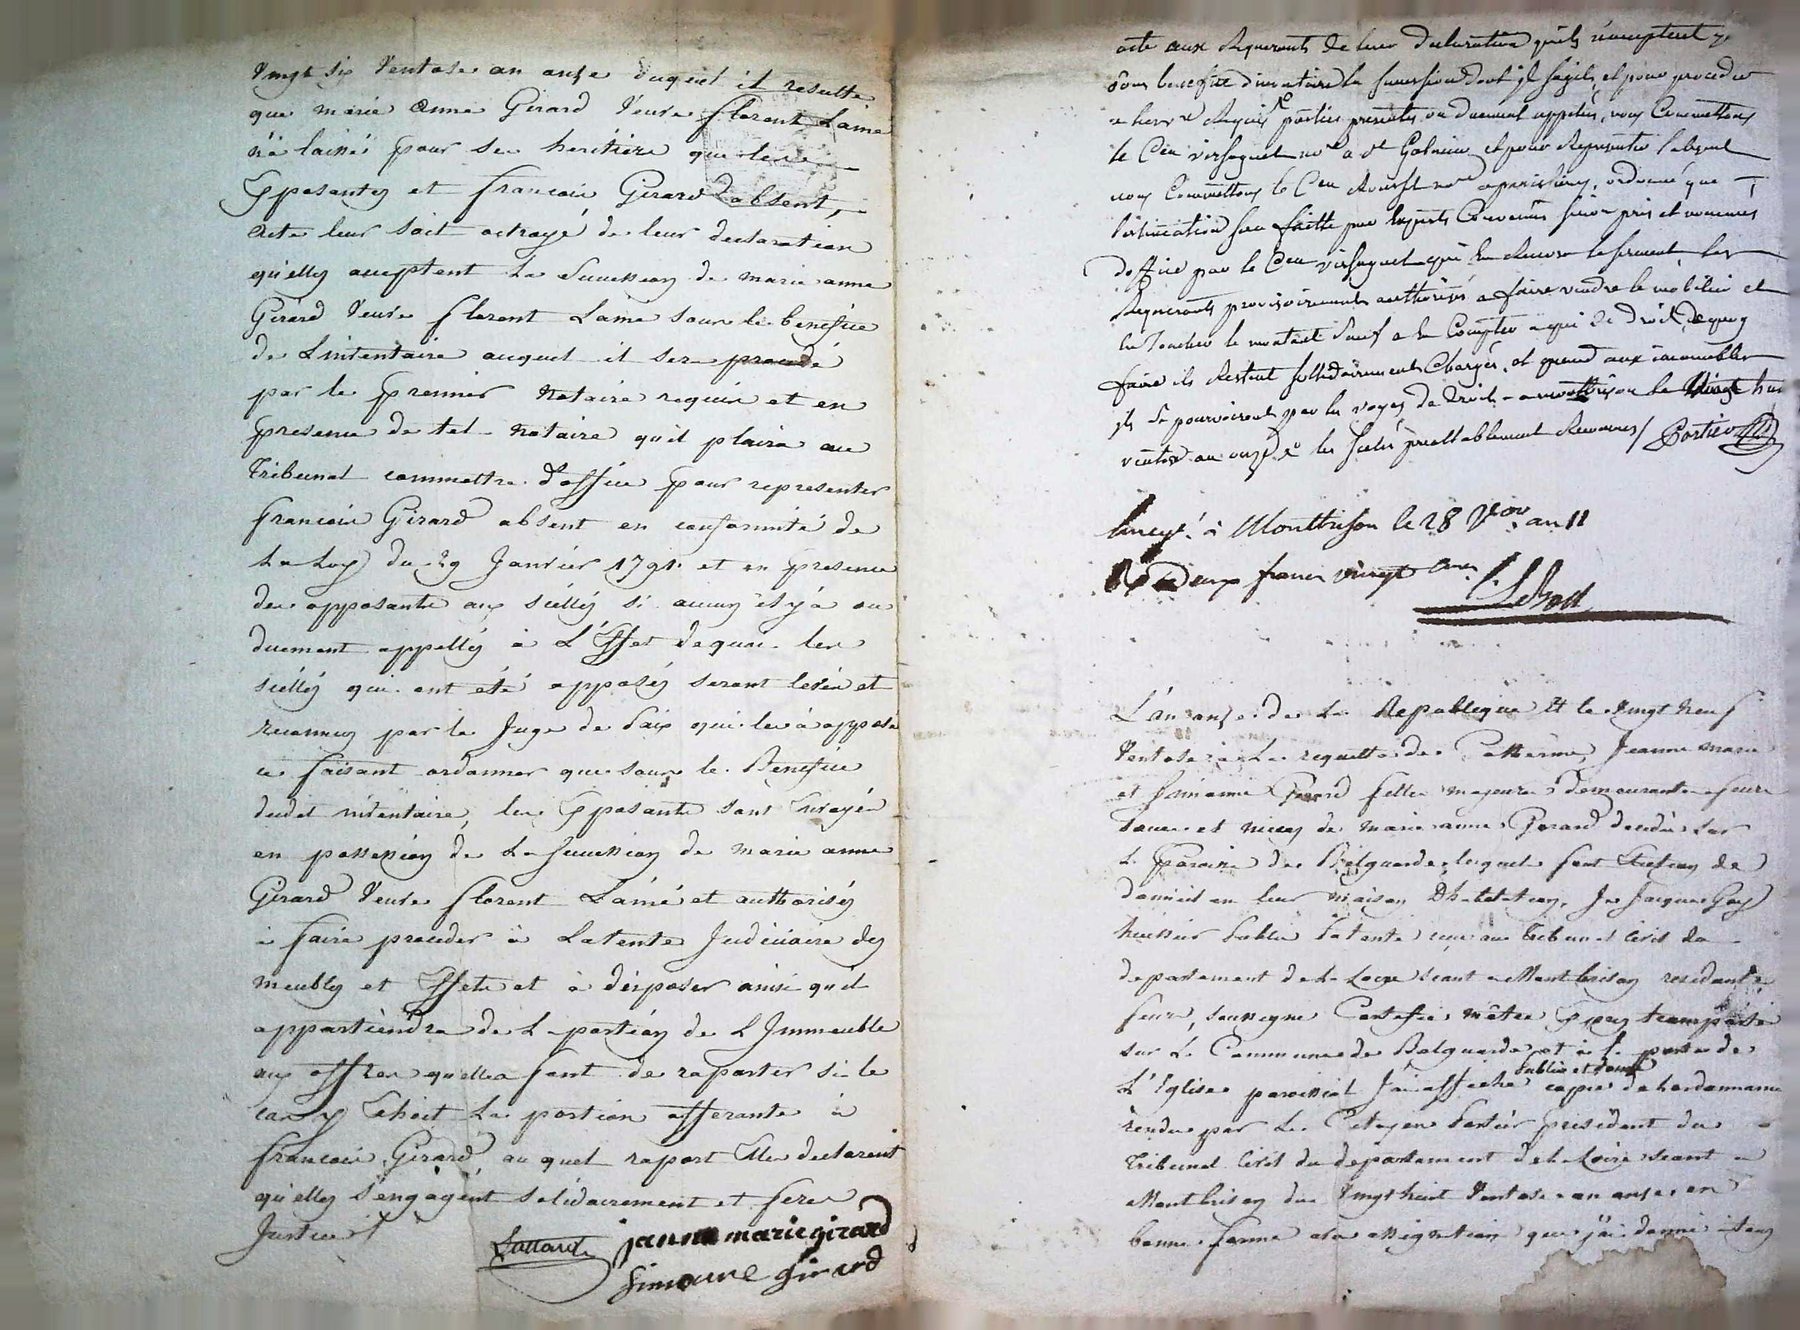 Vingt six Ventose an onze duquel il resulte
que marie anne Girard Veuve florent Lainé
n'a laissé pour ses heritiers que les
Exposantes et francois Girard absent,
acte leur soit octroyé de leur declaration
qu'elles acceptent La Succession de marie anne
Girard Veuve florent Lainé sous le benefice
de Linventaire auquel il sera procedé
par le premier Notaire requis et en
presence de tel Notaire qu'il plaira au
Tribunal commettre d'office pour representer
francois Girard absent en conformité de
La Loy du 29 Janvier 1791 et en presence
des opposants aux scellés si aucuns et y a ou
duement appellés à L'Effet de quoi les
scellés qui ont été apposés seront levés et
reconnus par le Juge de Paix qui les à apposé
ce faisant ordonner que sous le Benefice
dudit inventaire, les Exposantes sont Envoyés
en possession de La Succession de marie anne
Girard Veuve florent Lainé et authorisés
à faire proceder à Lavente Judiciaire des
meubles et Effets et à disposer ainsi qu'il
appartiendra de La portion de L'Immeuble
aux offres quelles font de raporter si le
cas y Echoit La portion afferante à
francois Girard, au quel raport Elles declarent
qu'elles s'engagent solidairement et ferez
Justice
jeanne marie girard
simoune girard
acte aux Requerants de leur declaration qu'ils n'acceptent que
sous benefice d'inventaire la succession dont il s'agit, et pour proceder
parties presentes ou duement appelées, nous Commettons
le Cen virfaguet nre a St Galmier et pour Representer l'absent
nous Commettons le Cen nre ordonné que
l'estimation sera faitte par Experts Convenus sinon pris et nommés
d'office par le Cen virfaguet qui En Recevra le serment, les
Requerants provisoirement authorisés a faire vendre le mobilier et
En Toucher le montant sauf a En Compter a qui de droit, de quoy
faire ils Restent sollidairement Chargés, et quand aux immeubles
ils se pourvoiront par les voyes de droit a montbrison le Vingt huit
ventose an onze & les scelés preallablement Reconnus / Portier
Enregé à Montbrison le 28 Vose an 11
Rç Deux francs vingt cen
L'an onze de La Republique et le vingt Neuf
Ventose à La requette de Catherine, Jeanne marie
et simonne Girard filles majeures demeurantes a feurs
soeurs et nieces de marie anne Girard decedée sur
La Paroisse de Belgarde, lesquels font Election de
domicil en leur maison D'habitation, Je Jacques Gay
huissier Public Patenté reçu au Tribunal Civil du
departement de La Loire séant a Montbrison residant a
feurs, soussigné Certifie m'etre Expres transporté
sur La Commune de Belgarde et à la porte de
L'Eglise paroissial J'ai affiché publié et donné copie de Lordonnance
rendue par Le Citoyen Portier president du
Tribunal Civil du departement de la Loire séant a
Montbrison du vingt huit Ventose an onze en
bonne forme ala assignation que j'ai donné à tous